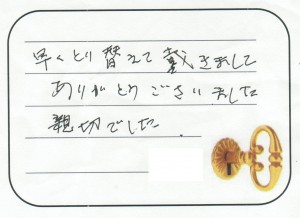 早くとり替えて戴きまして
ありがとうございました
親切でした.